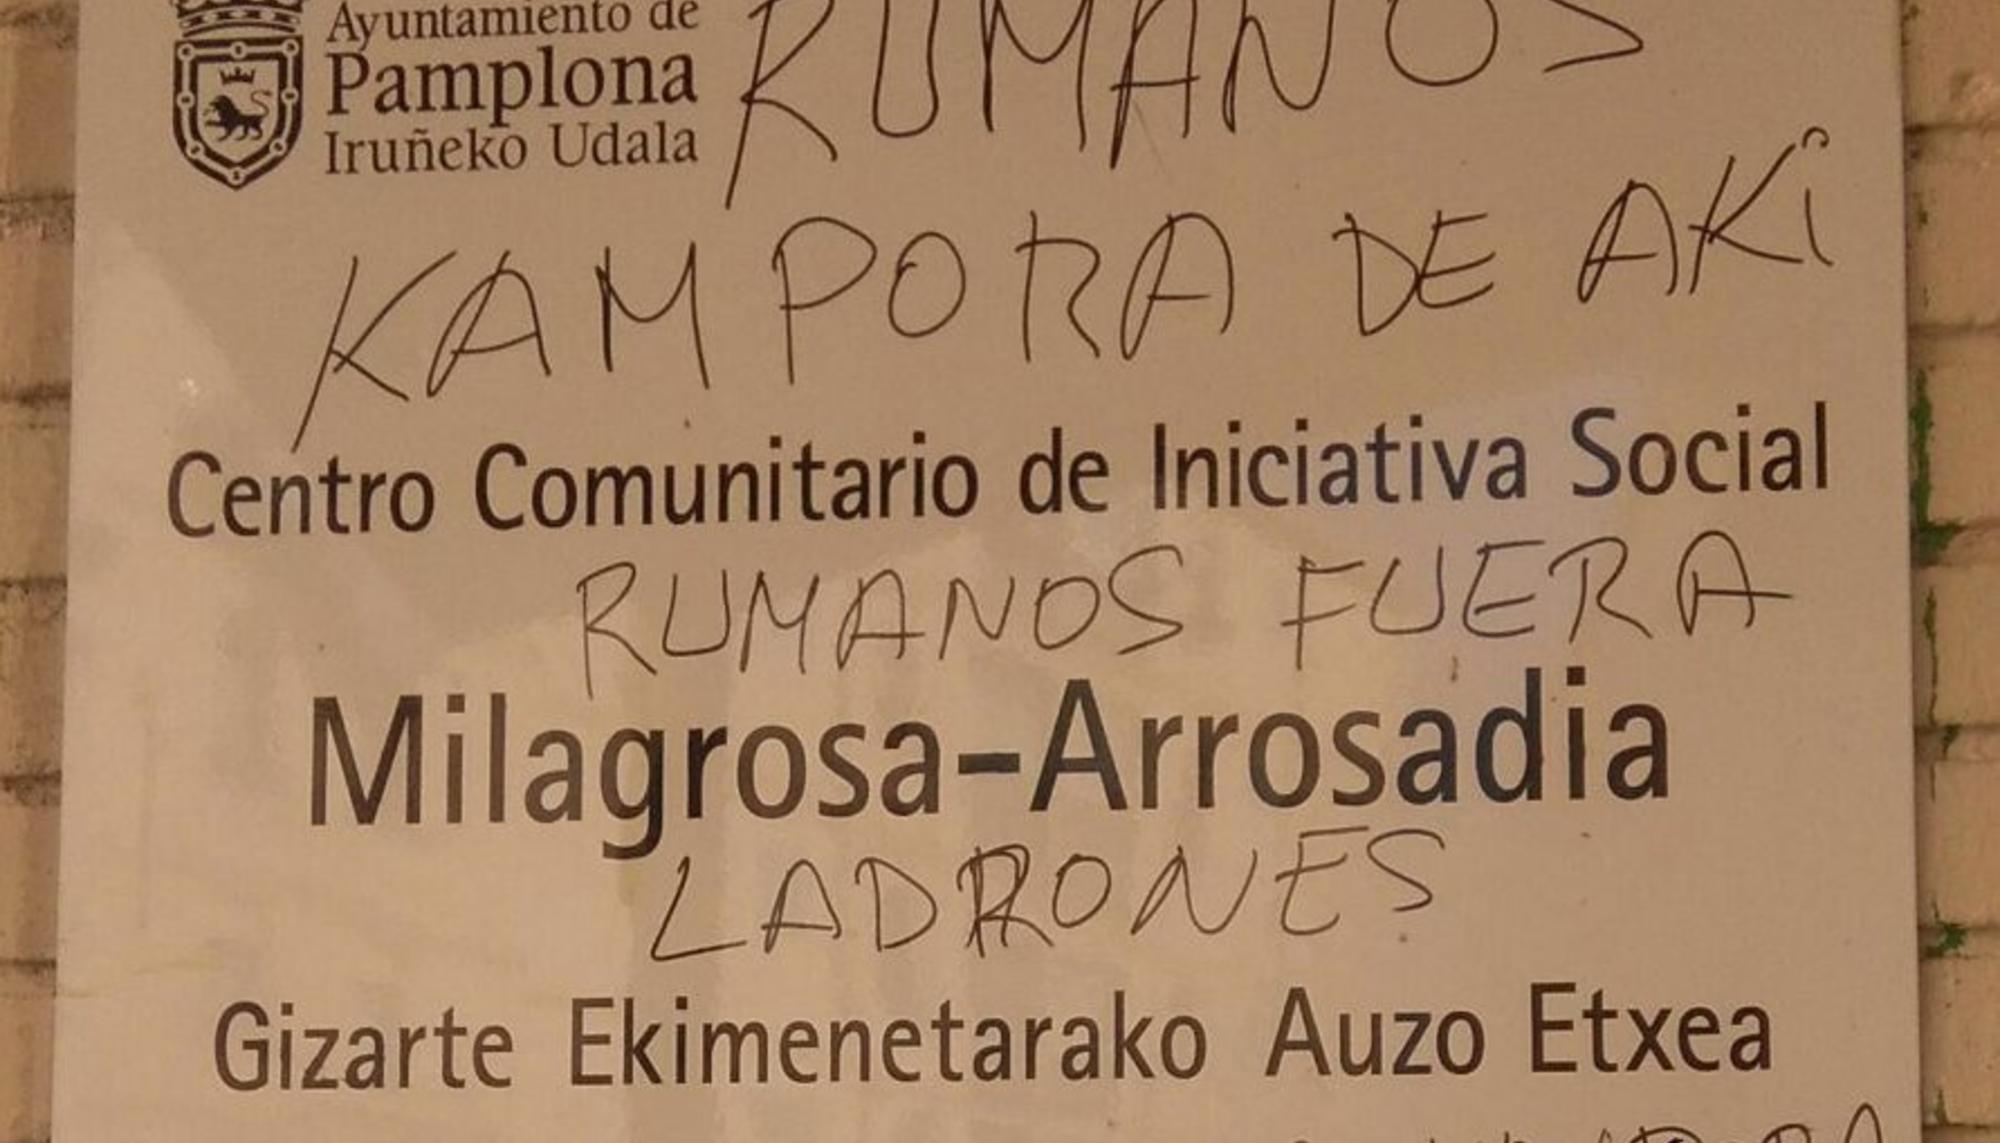 Ayuntamiento de
Pamplona
Iruñeko Udala
RUMANOS
KAMPORA DE AKÍ
Centro Comunitario de Iniciativa Social
RUMANOS FUERA
Milagrosa-Arrosadia
LADRONES
Gizarte Ekimenetarako Auzo Etxea